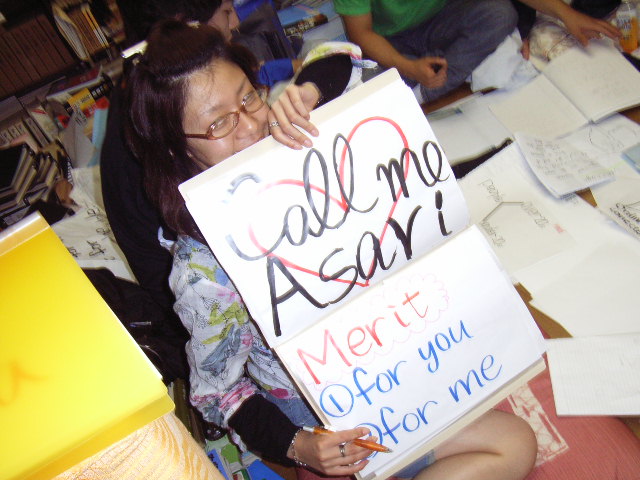 Call me
Asari
Merit
①for you
②for me